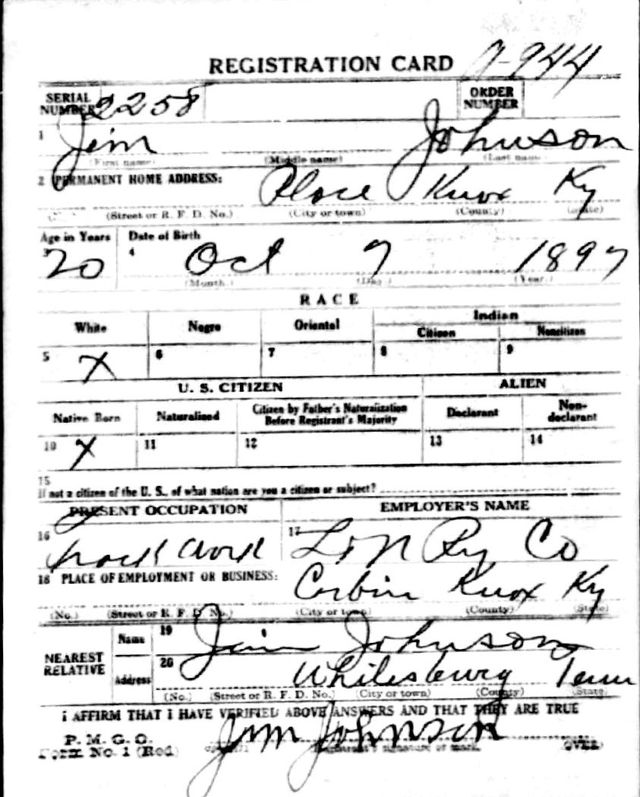 REGISTRATION CARD 7-944
SERIAL NUMBER 2258 ORDER NUMBER
1 Jim Johnson
(First name) (Middle name) (Last name)
2 PERMANENT HOME ADDRESS: Place Knox Ky
(Street or R. F. D. No.) (City or town) (County) (State)
Age in Years Date of Birth
20 4 Oct 7 1897
(Month.) (Day.) (Year.)
RACE
White Negro Oriental Indian
Citizen Noncitizen
5 X 6 7 8 9
U. S. CITIZEN ALIEN
Native Born Naturalized Citizen by Father's Naturalization Before Registrant's Majority Declarant Non-declarant
10 X 11 12 13 14
15
If not a citizen of the U. S., of what nation are you a citizen or subject?
PRESENT OCCUPATION EMPLOYER'S NAME
16 Track Work 17 L & N Ry Co
18 PLACE OF EMPLOYMENT OR BUSINESS: Corbin Knox Ky
(No.) (Street or R. F. D. No.) (City or town) (County) (State)
NEAREST RELATIVE Name 19 Jim Johnson
Address 20 Whitesburg Tenn
(No.) (Street or R. F. D. No.) (City or town) (County) (State)
I AFFIRM THAT I HAVE VERIFIED ABOVE ANSWERS AND THAT THEY ARE TRUE
P. M. G. O.
Form No. 1 (Red) Jim Johnson (OVER)